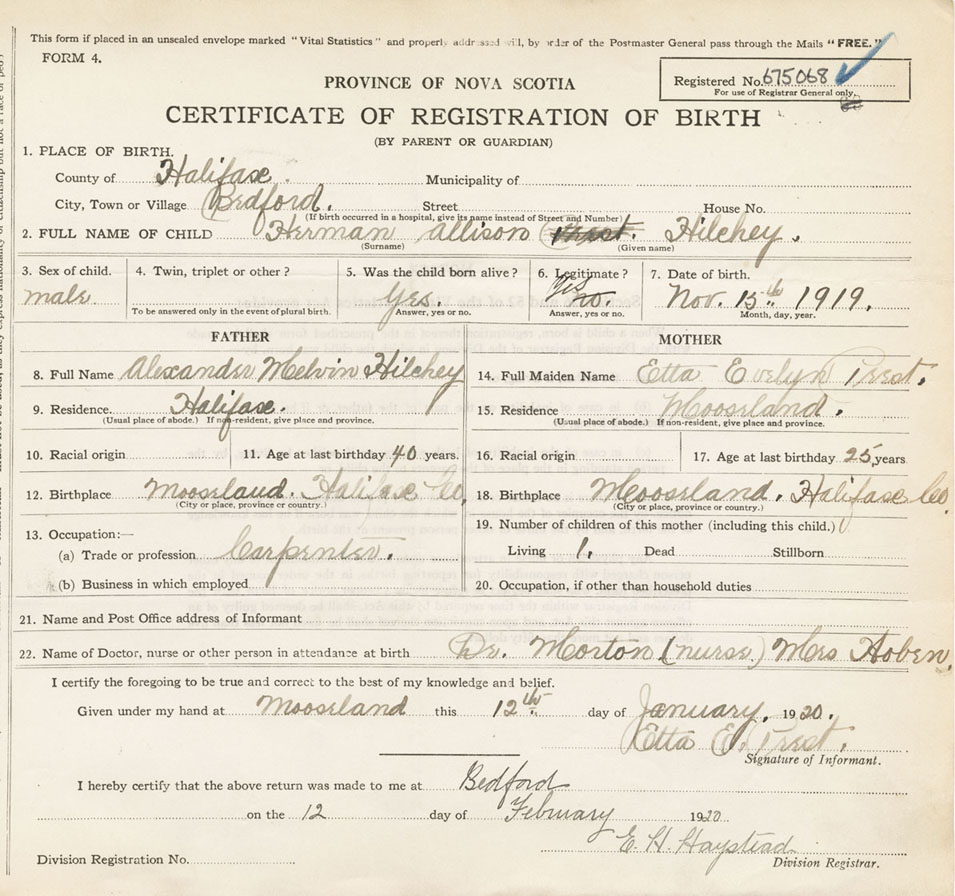 This form if placed in an unsealed envelope marked "Vital Statistics" and properly addressed will, by order of the Postmaster General pass through the Mails "FREE."
FORM 4.
Registered No. 675068
For use of Registrar General only.
PROVINCE OF NOVA SCOTIA
CERTIFICATE OF REGISTRATION OF BIRTH
(BY PARENT OR GUARDIAN)
1. PLACE OF BIRTH.
County of Halifax. Municipality of
City, Town or Village Bedford. Street House No.
(If birth occurred in a hospital, give its name instead of Street and Number)
2. FULL NAME OF CHILD Herman Allison Prest. Hilchey.
(Surname) (Given name)
3. Sex of child. 4. Twin, triplet or other? 5. Was the child born alive? 6. Legitimate? 7. Date of birth.
male Yes. Yes no. Nov. 15th 1919.
To be answered only in the event of plural birth. Answer, yes or no. Answer, yes or no. Month, day, year.
FATHER MOTHER
8. Full Name Alexander Melvin Hilchey 14. Full Maiden Name Etta Evelyn Prest.
9. Residence. Halifax. 15. Residence Mooseland.
(Usual place of abode.) If non-resident, give place and province. (Usual place of abode.) If non-resident, give place and province.
10. Racial origin 11. Age at last birthday 40 years. 16. Racial origin 17. Age at last birthday 25 years
12. Birthplace Mooseland. Halifax Co. 18. Birthplace Mooseland. Halifax Co.
(City or place, province or country.) (City or place, province or country.)
13. Occupation:— 19. Number of children of this mother (including this child.)
(a) Trade or profession Carpenter. Living 1. Dead Stillborn
(b) Business in which employed 20. Occupation, if other than household duties
21. Name and Post Office address of Informant
22. Name of Doctor, nurse or other person in attendance at birth Dr. Morton (nurse) Mrs Hoben.
I certify the foregoing to be true and correct to the best of my knowledge and belief.
Given under my hand at Mooseland this 12th day of January, 1920.
Etta E. Prest.
Signature of Informant.
I hereby certify that the above return was made to me at Bedford
on the 12 day of February 1920
E. H. Haystead
Division Registration No. Division Registrar.